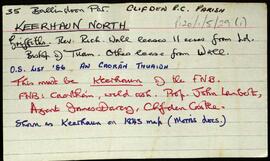 35 Ballindoon Par. CLIFDEN R.C. PARISH
P120/1/5/29 (i)
KEERHAUN NORTH
Griffith: Rev. Rich. Wall leases 11 acres from Ld.
Bishop of Tuam. Others lease from Wall.
O.S. LIST '86 AN CAORÁN THUAIDH
This must be Keerhaun of the FNB.
FNB: Caorthán, wild ash. Prop. John Lambert,
Agent James Darcy, Clifden Castle.
Shown as Keerhaun on 1845 map (Morris docs.)